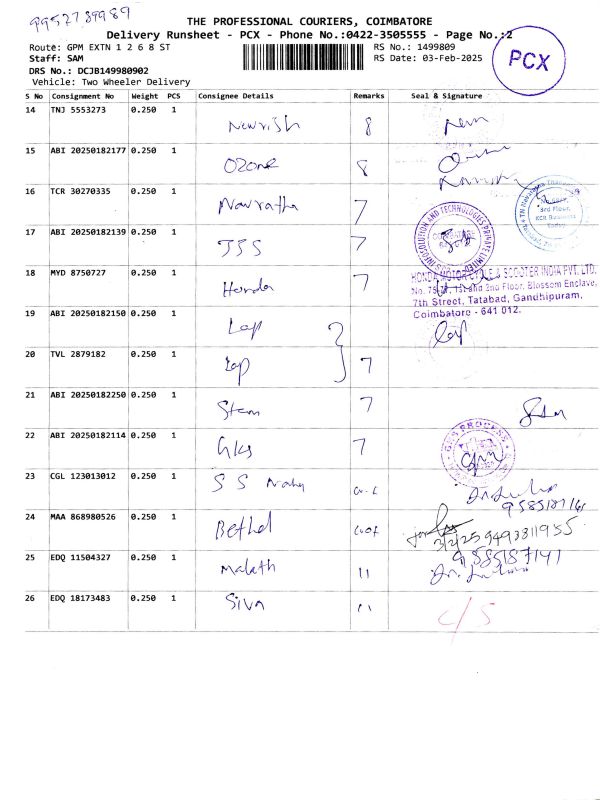 9952789989
THE PROFESSIONAL COURIERS, COIMBATORE
Delivery Runsheet - PCX - Phone No.:0422-3505555 - Page No.:2
Route: GPM EXTN 1 2 6 8 ST RS No.: 1499809
Staff: SAM RS Date: 03-Feb-2025
DRS No.: DCJB149980902
Vehicle: Two Wheeler Delivery
PCX
S No Consignment No Weight PCS Consignee Details Remarks Seal & Signature
14 TNJ 5553273 0.250 1 Newrish 8
15 ABI 20250182177 0.250 1 Ozone 8
16 TCR 30270335 0.250 1 Navratha 7
3rd Floor,
KCR Business
17 ABI 20250182139 0.250 1 JSS 7
18 MYD 8750727 0.250 1 Honda 7
HONDA MOTORCYCLE & SCOOTER INDIA PVT. LTD.
No. 75-76, 1st and 2nd Floor, Blossom Enclave,
7th Street, Tatabad, Gandhipuram,
Coimbatore - 641 012.
19 ABI 20250182150 0.250 1 Lap
20 TVL 2879182 0.250 1 Lap 7
21 ABI 20250182250 0.250 1 Stem 7
22 ABI 20250182114 0.250 1 GKS 7
23 CGL 123013012 0.250 1 S S
24 MAA 868980526 0.250 1 Bethel
9493311955
25 EDQ 11504327 0.250 1 Malath 11
9585187141
26 EDQ 18173483 0.250 1 Siva 11 C/S